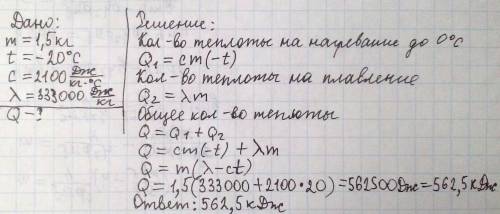 Дано:
m = 1,5 кг
t = -20°C
c = 2100 Дж/кг·°C
λ = 333000 Дж/кг
Q - ?
Решение:
Кол-во теплоты на нагревание до 0°C
Q₁ = cm(-t)
Кол-во теплоты на плавление
Q₂ = λm
Общее кол-во теплоты
Q = Q₁ + Q₂
Q = cm(-t) + λm
Q = m(λ - ct)
Q = 1,5(333000 + 2100·20) = 562500 Дж = 562,5 кДж
Ответ: 562,5 кДж